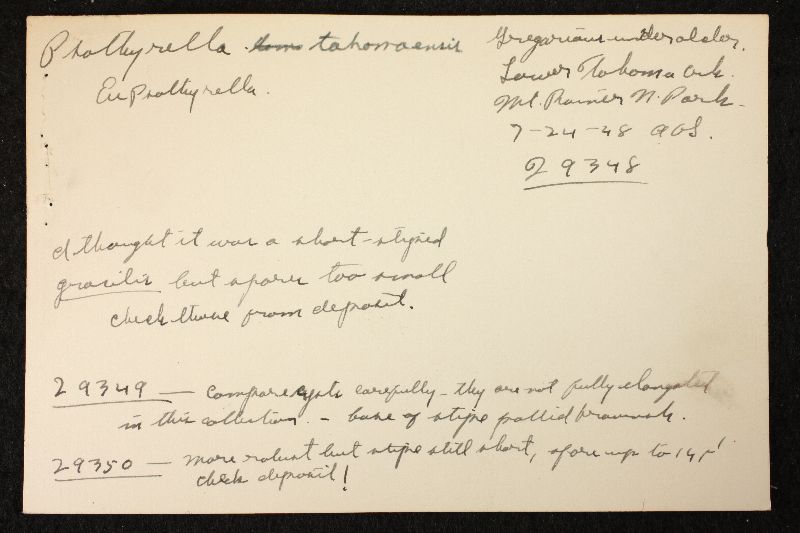 Psathyrella tahomaensis
Eu Psathyrella.
Gregarious under alder.
Lower Tahoma Crk.
Mt. Rainier N. Park
7-24-48 AHS.
29348
I thought it was a short-stiped
gracilis but spores too small
check those from deposit.
29349 — compare cysts carefully - they are not fully elongated
in this collection. - base of stipe pallid brownish.
29350 — more robust but stipe still short, spores up to 14 µ!
check deposit!